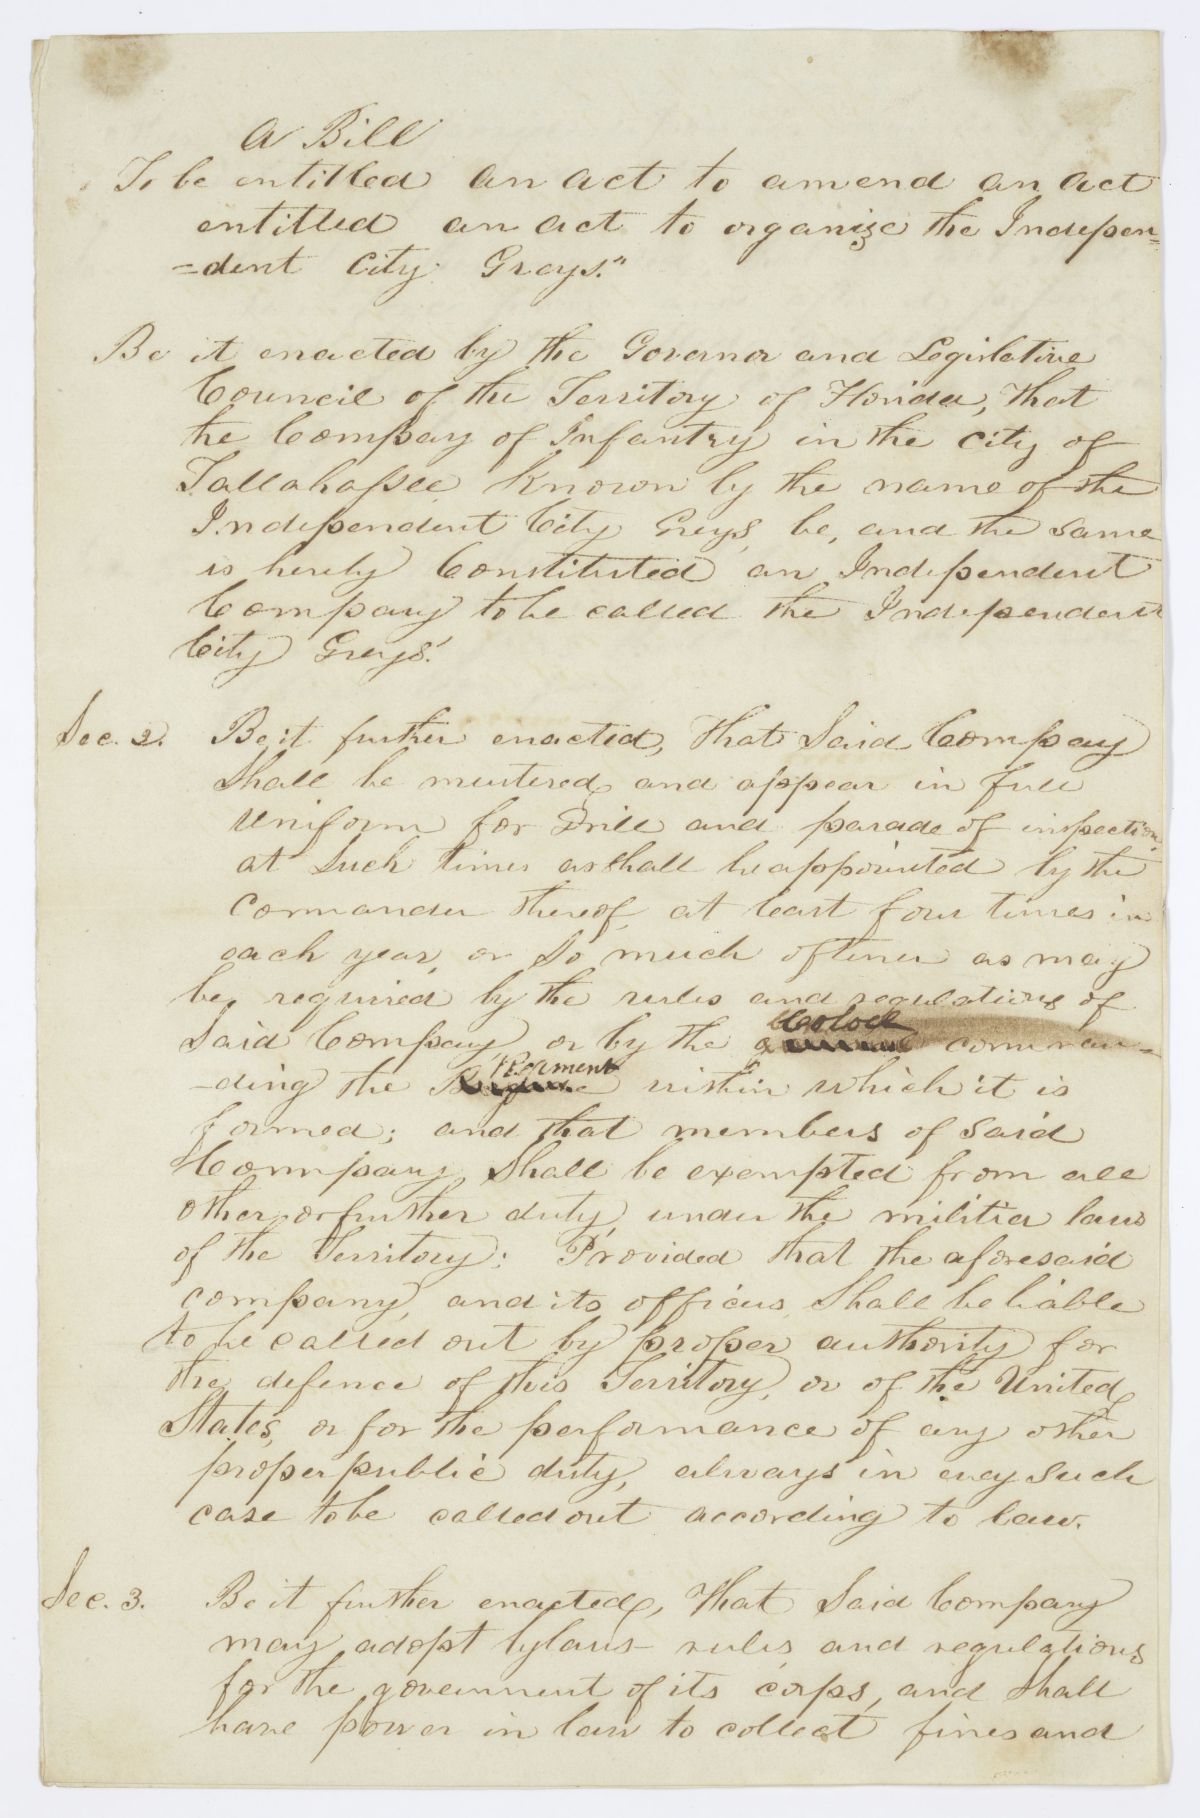 A Bill
To be entitled an act to amend an act
entitled an act to organize the Indepen=
=dent City Greys."
Be it enacted by the Governor and Legislative
Council of the Territory of Florida, That
the Company of Infantry in the City of
Tallahassee Known by the name of the
Independent City Greys, be, and the same
is hereby Constituted an Independent
Company to be called the Independent
City Greys.
Sec. 2. Be it further enacted, That Said Company
Shall be mustered, and appear in full
Uniform for Drill and parade of inspection,
at Such times as shall be appointed by the
Commander thereof, at least four times in
each year, or So much oftener as may
be, required by the rules and regulations of
Said Company, or by the Colock comman=
-ding the Regiment within which it is
formed; and that members of Said
Company Shall be exempted from all
other or further duty, under the militia laws
of the Territory: Provided that the aforesaid
company, and its officers, Shall be liable
to be called out by proper authority for
the defence of this Territory, or of the United
States, or for the performance of any other
proper public duty, always in every Such
case to be called out according to law.
Sec. 3. Be it further enacted, That Said Company
may adopt bylaws rules and regulations
for the government of its corps, and Shall
have power in law to collect fines and